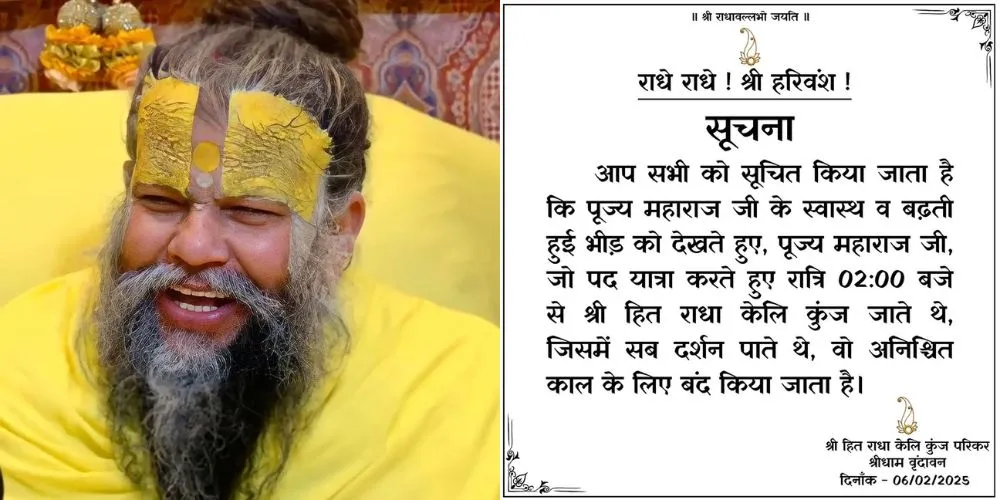 ॥ श्री राधावल्लभो जयति ॥
राधे राधे ! श्री हरिवंश !
सूचना
आप सभी को सूचित किया जाता है
कि पूज्य महाराज जी के स्वास्थ व बढ़ती
हुई भीड़ को देखते हुए, पूज्य महाराज जी,
जो पद यात्रा करते हुए रात्रि 02:00 बजे
से श्री हित राधा केलि कुंज जाते थे,
जिसमें सब दर्शन पाते थे, वो अनिश्चित
काल के लिए बंद किया जाता है।
श्री हित राधा केलि कुंज परिकर
श्रीधाम वृंदावन
दिनाँक - 06/02/2025